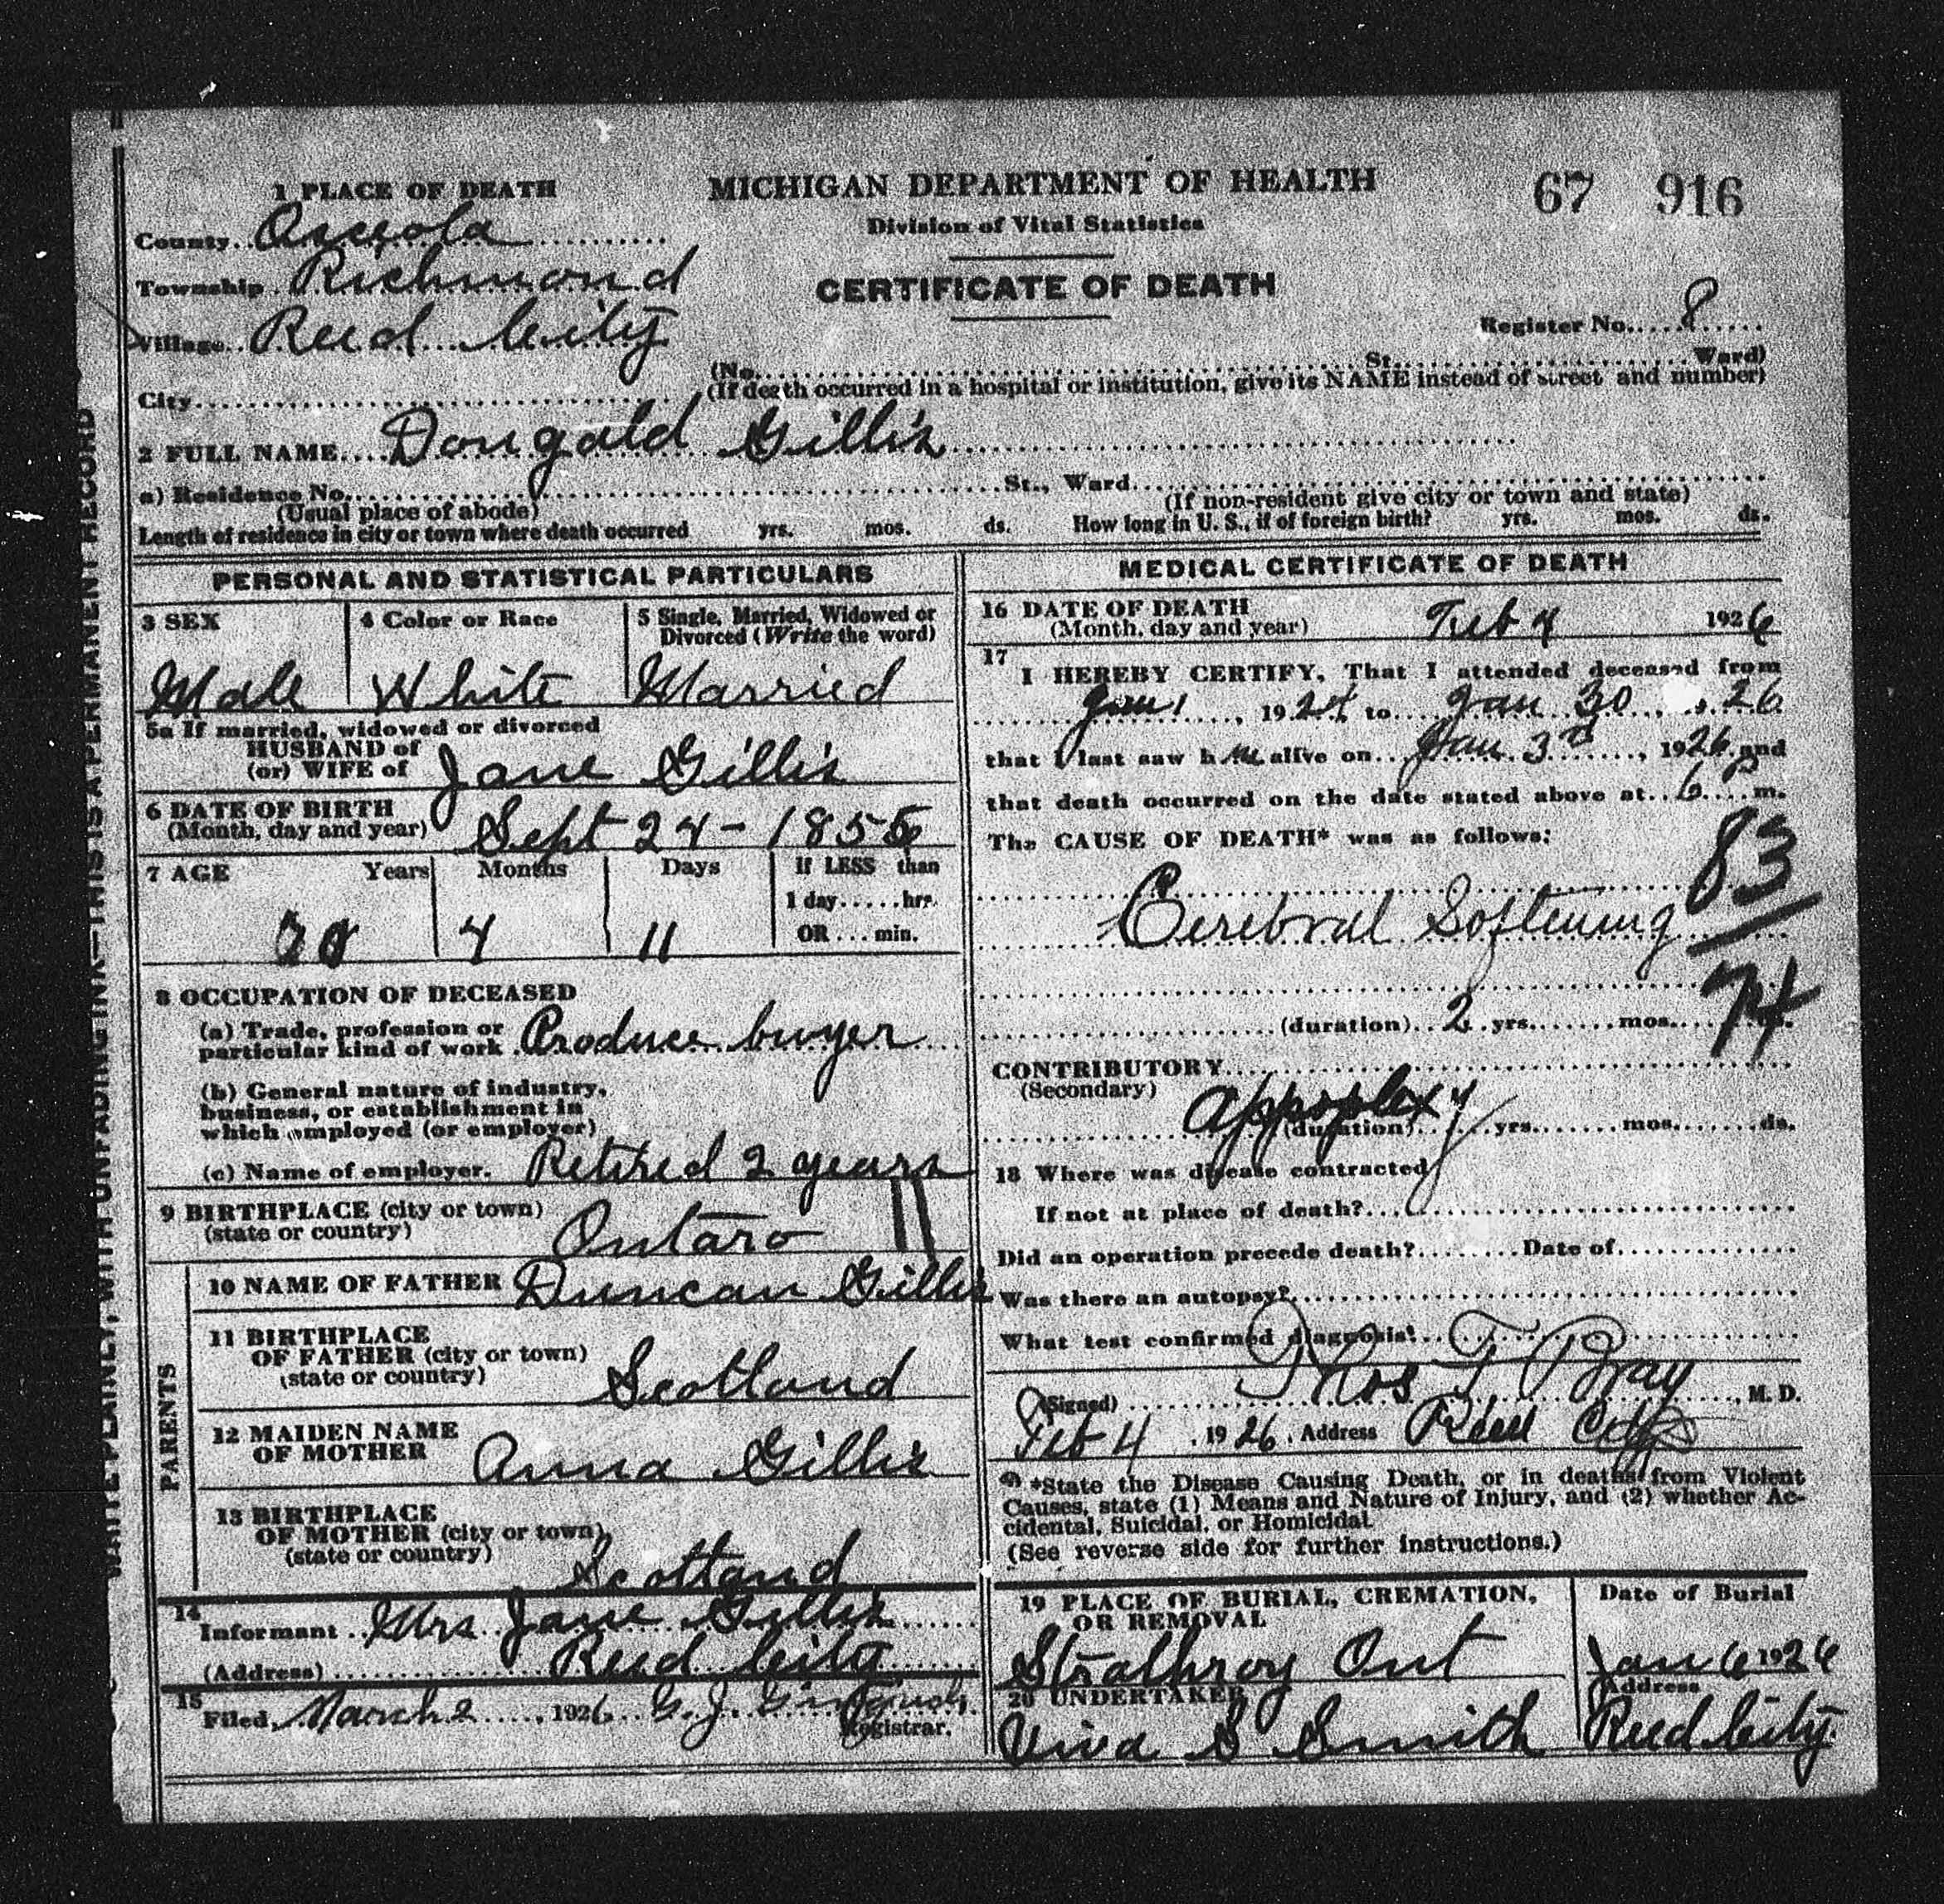 1 PLACE OF DEATH
MICHIGAN DEPARTMENT OF HEALTH
67 916
Division of Vital Statistics
County.. Osceola
Township. Richmond
CERTIFICATE OF DEATH
Village.. Reed City
Register No.....8.....
(No. St. Ward)
City
(If death occurred in a hospital or institution, give its NAME instead of street and number)
2 FULL NAME.... Dougald Gillis
a) Residence No. St., Ward.
(Usual place of abode) (If non-resident give city or town and state)
Length of residence in city or town where death occurred yrs. mos. ds. How long in U. S., if of foreign birth? yrs. mos. ds.
PERSONAL AND STATISTICAL PARTICULARS
3 SEX
Male
4 Color or Race
White
5 Single, Married, Widowed or
Divorced (Write the word)
Married
5a If married, widowed or divorced
HUSBAND of
(or) WIFE of Jane Gillis
6 DATE OF BIRTH
(Month, day and year) Sept 24 - 1855
7 AGE Years Months Days If LESS than
1 day......hrs.
OR ... min.
70 4 11
8 OCCUPATION OF DECEASED
(a) Trade, profession or
particular kind of work Produce buyer
(b) General nature of industry,
business, or establishment in
which employed (or employer)
(c) Name of employer. Retired 2 years
9 BIRTHPLACE (city or town)
(state or country) Ontaro
11
PARENTS
10 NAME OF FATHER Duncan Gillis
11 BIRTHPLACE
OF FATHER (city or town)
(state or country) Scotland
12 MAIDEN NAME
OF MOTHER Anna Gillis
13 BIRTHPLACE
OF MOTHER (city or town)
(state or country) Scotland
14
Informant .. Mrs Jane Gillis
(Address) Reed City
15
Filed, March 2 , 1926 G. J.
Registrar.
MEDICAL CERTIFICATE OF DEATH
16 DATE OF DEATH
(Month, day and year) Feb 4 1926
17
I HEREBY CERTIFY, That I attended deceased from
Jan 1 , 1924 to Jan 30 , 26
that I last saw him alive on Jan 3 , 1926 and
that death occurred on the date stated above at..6 P m.
The CAUSE OF DEATH* was as follows:
83
Cerebral Softening
74
(duration)..2..yrs.......mos.......ds.
CONTRIBUTORY
(Secondary)
Appoplexy
(duration) yrs.......mos.......ds.
18 Where was disease contracted
If not at place of death?
Did an operation precede death?........Date of
Was there an autopsy?
What test confirmed diagnosis?
(Signed) Thos F Bray , M. D.
Feb 4 , 1926 , Address Reed City
*State the Disease Causing Death, or in deaths from Violent
Causes, state (1) Means and Nature of Injury, and (2) whether Ac-
cidental, Suicidal, or Homicidal.
(See reverse side for further instructions.)
19 PLACE OF BURIAL, CREMATION,
OR REMOVAL
Strathroy Ont
Date of Burial
Jan 6 1926
20 UNDERTAKER
Viva S Smith
Address
Reed City
WRITE PLAINLY, WITH UNFADING INK—THIS IS A PERMANENT RECORD